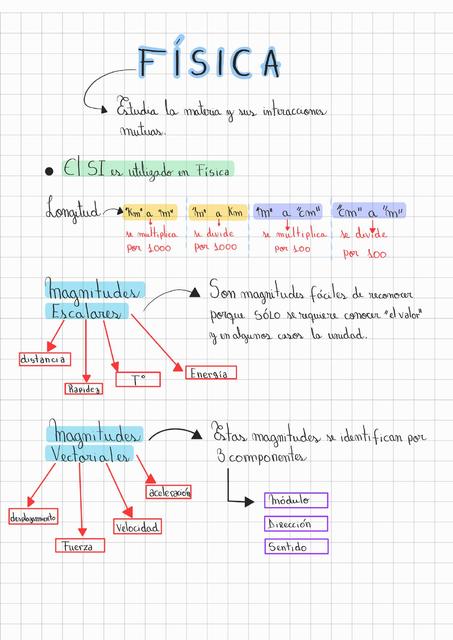 FÍSICA
Estudia la materia y sus interacciones
mutuas.
• El SI es utilizado en Física
Longitud
"Km" a "m"
"m" a Km
"m" a "cm"
"cm" a "m"
se multiplica
por 1000
se divide
por 1000
se multiplica
por 100
se divide
por 100
Magnitudes
Escalares
Son magnitudes fáciles de reconocer
porque SÓLO se requiere conocer "el valor"
y en algunos casos la unidad.
distancia
Rapidez
T°
Energía
Magnitudes
Vectoriales
Estas magnitudes se identifican por
3 componentes
aceleración
desplazamiento
Velocidad
Fuerza
Módulo
Dirección
Sentido